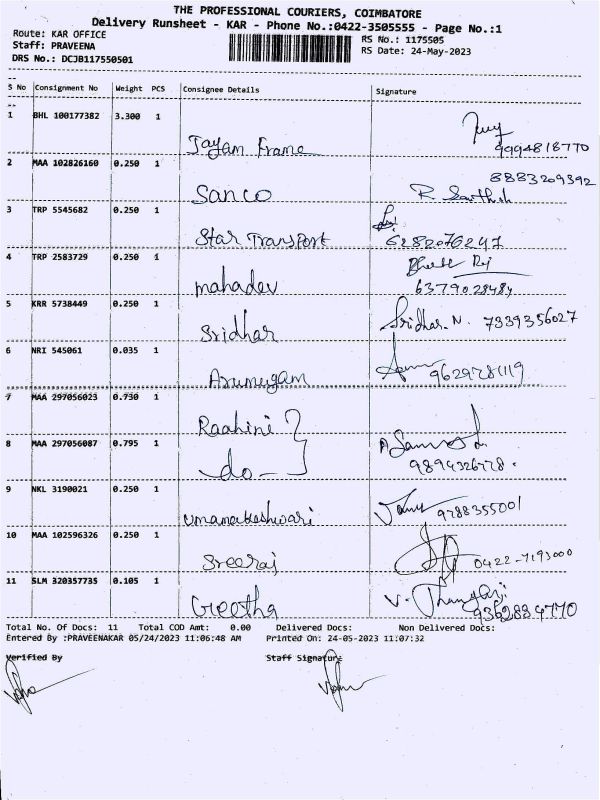 THE PROFESSIONAL COURIERS, COIMBATORE
Delivery Runsheet - KAR - Phone No.:0422-3505555 - Page No.:1
Route: KAR OFFICE
RS No.: 1175505
Staff: PRAVEENA
RS Date: 24-May-2023
DRS No.: DCJB117550501
S No Consignment No Weight PCS Consignee Details Signature
1 BHL 100177382 3.300 1
Jayam Frame 9994818770
2 MAA 102826160 0.250 1
8883209392
Sanco R. Sarthish
3 TRP 5545682 0.250 1
Star Transport 6282076247
4 TRP 2583729 0.250 1
mahadev 6379028484
5 KRR 5738449 0.250 1
Sridhar Sridhar. N. 7339356027
6 NRI 545061 0.035 1
Arumugam 9629781119
7 MAA 297056023 0.730 1
Raahini
8 MAA 297056087 0.795 1
do 9894326778.
9 NKL 3190021 0.250 1
Umamakeshwari 9788355001
10 MAA 102596326 0.250 1
Sreeraj 0422-7193000
11 SLM 320357735 0.105 1
Geetha V. 9362834770
Total No. Of Docs: 11 Total COD Amt: 0.00 Delivered Docs: Non Delivered Docs:
Entered By :PRAVEENAKAR 05/24/2023 11:06:48 AM Printed On: 24-05-2023 11:07:32
Verified By Staff Signature